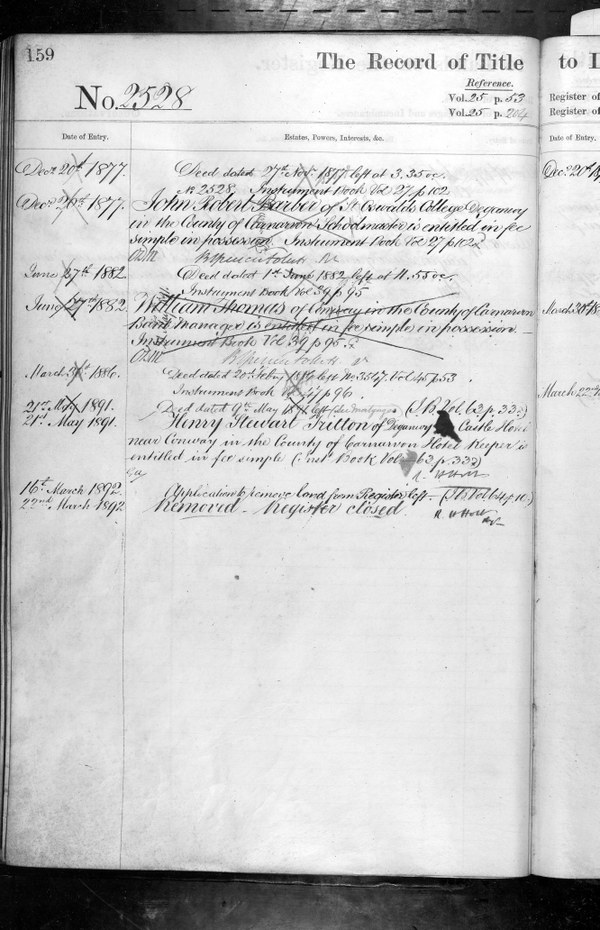 159
The Record of Title
to L
No. 2528
Reference.
Vol. 25 p. 53
Vol. 25 p. 204
Register of
Register of
Date of Entry.
Estates, Powers, Interests, &c.
Date of Entry.
Decr 20th 1877.
Deed dated 27th Novr. 1877 left at 3.35 oc.
Decr. 20th 18
No 2528. Instrument Book Vol 27 p 102
Decr 1877.
John Robert Barber of St Oswalds College Deganwy
in the County of Carnarvon Schoolmaster is entitled in fee
simple in possession. Instrument Book Vol 27 p 102
June 27th 1882
Deed dated 1st June 1882 left at 11.55 oc.
Instrument Book Vol 39 p 95
June 27th 1882.
William Thomas of Conway in the County of Carnarvon
March 30th 18
Bank Manager is entitled in fee simple in possession.
Instrument Book Vol 39 p 95.
March 1886.
Deed dated 20th Feby 1886 left No. 3547. Vol 45 p 53
Instrument Book p 96
March 22nd
21st May 1891.
Deed dated 9th May 1891 left (see Mortgages) (I.B. Vol. 63 p. 33)
21st May 1891.
Henry Stewart Tritton of Deganwy Castle Hotel
near Conway in the County of Carnarvon Hotel Keeper is
entitled in fee simple (Inst. Book Vol 63 p. 33)
16th March 1892.
Application to remove land from Register left
22nd March 1892
Removed - Register closed.